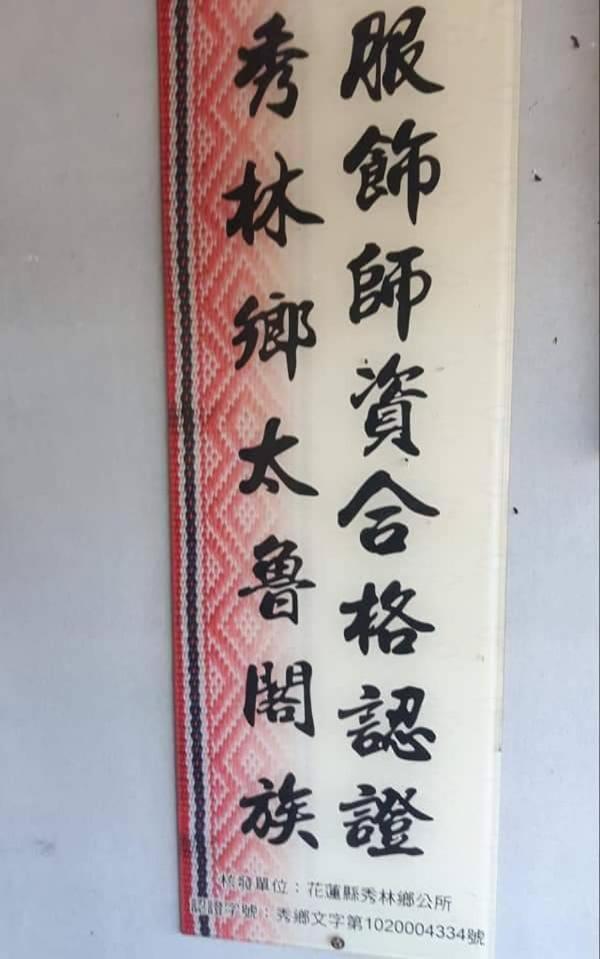 秀林鄉太魯閣族
服飾師資合格認證
核發單位：花蓮縣秀林鄉公所
認證字號：秀鄉文字第1020004334號